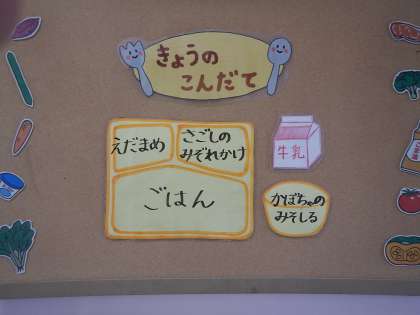 きょうの
こんだて
えだまめ
さごしの
みぞれかけ
牛乳
ごはん
かぼちゃの
みそしる